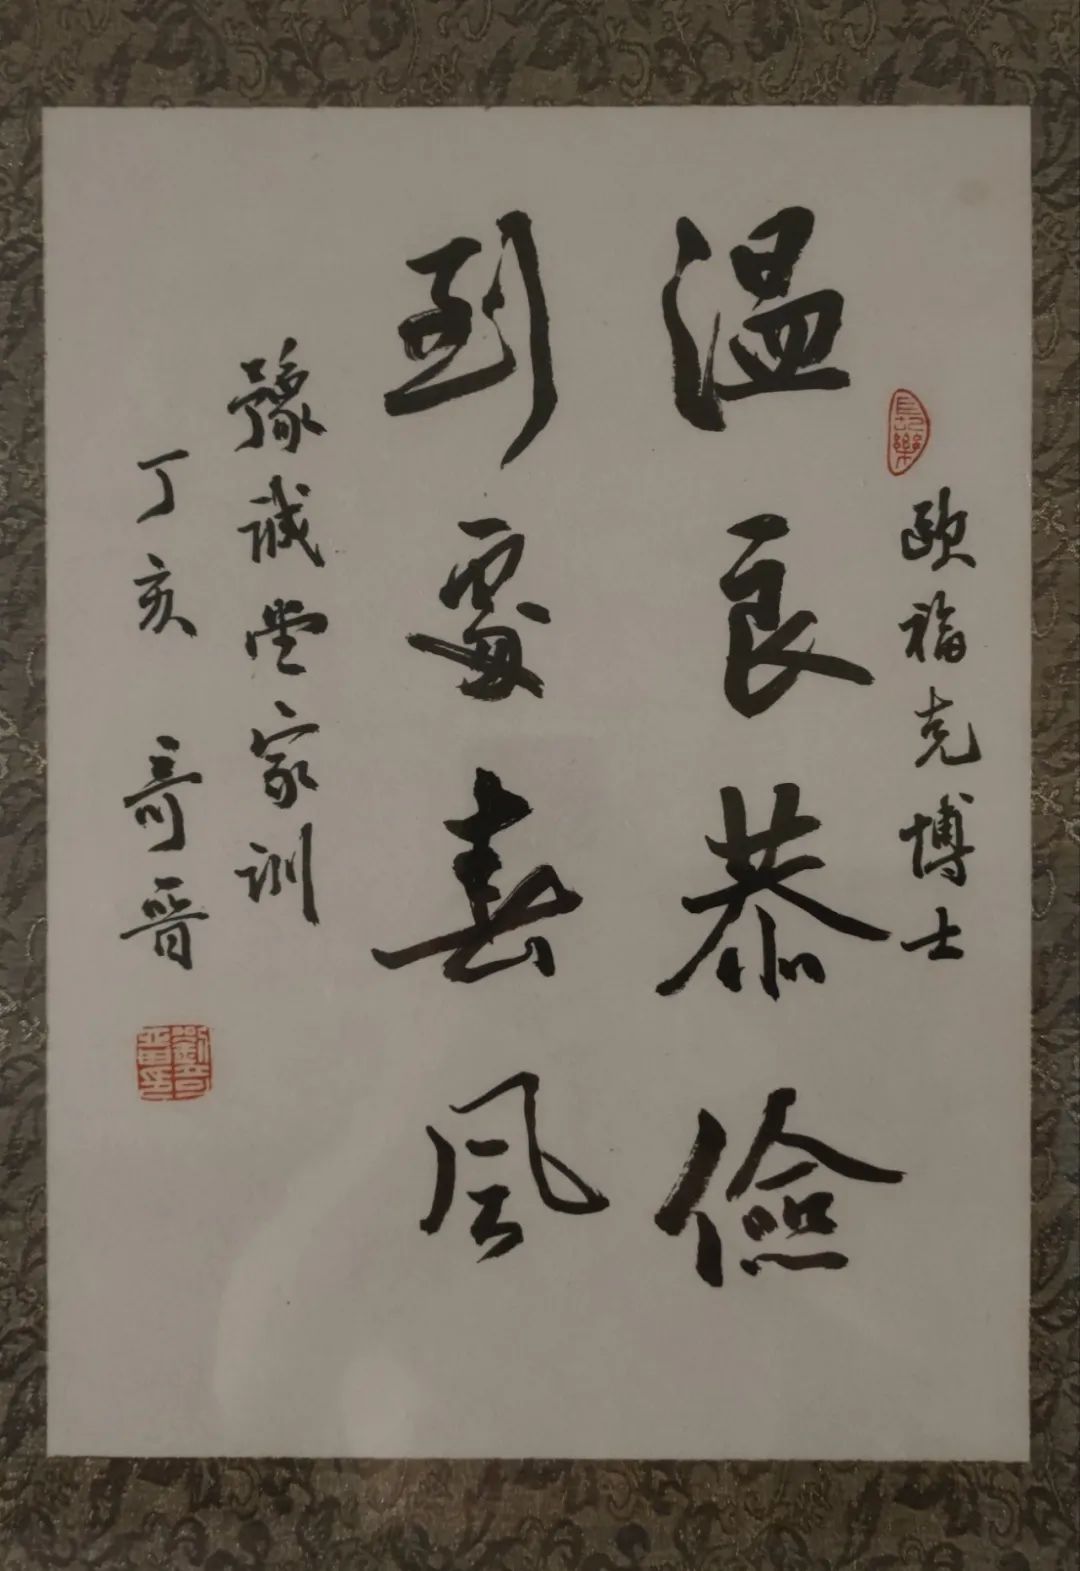 長樂
歐福克博士
温良恭儉
到處春風
豫誠堂家訓
丁亥 哥晋